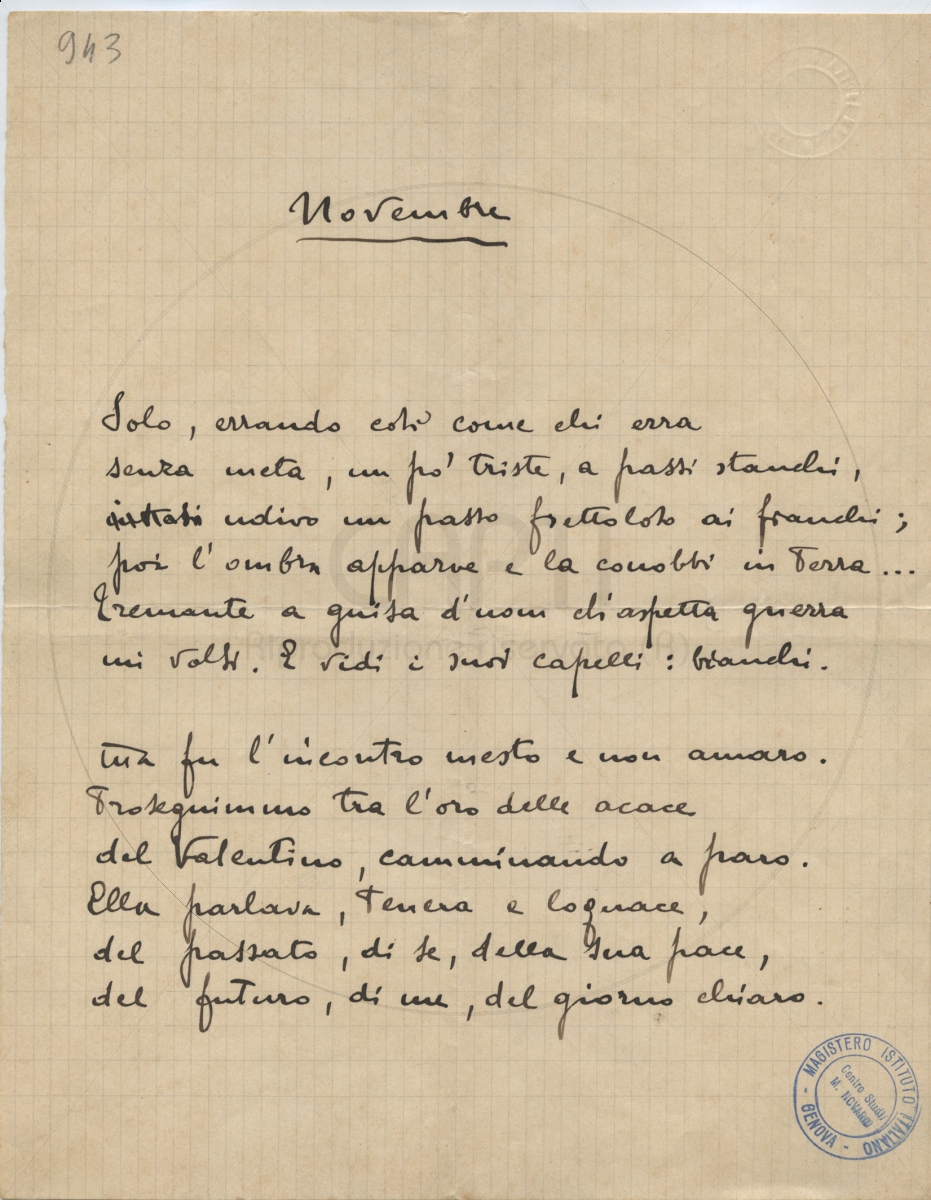 943
Novembre
Solo, errando così come chi erra
senza meta, un po' triste, a passi stanchi,
udivo un passo frettoloso ai fianchi;
poi l'ombra apparve e la conobbi in terra...
Tremante a guisa d'uom ch'aspetta guerra
mi volsi. E vidi i suoi capelli: bianchi.
Ma fu l'incontro mesto e non amaro.
Proseguimmo tra l'oro delle acace
del Valentino, camminando a paro.
Ella parlava, tenera e loquace,
del passato, di se, della sua pace,
del futuro, di me, del giorno chiaro.
MAGISTERO ISTITUTO ITALIANO - GENOVA -
Centro Studi
M. NOVARO